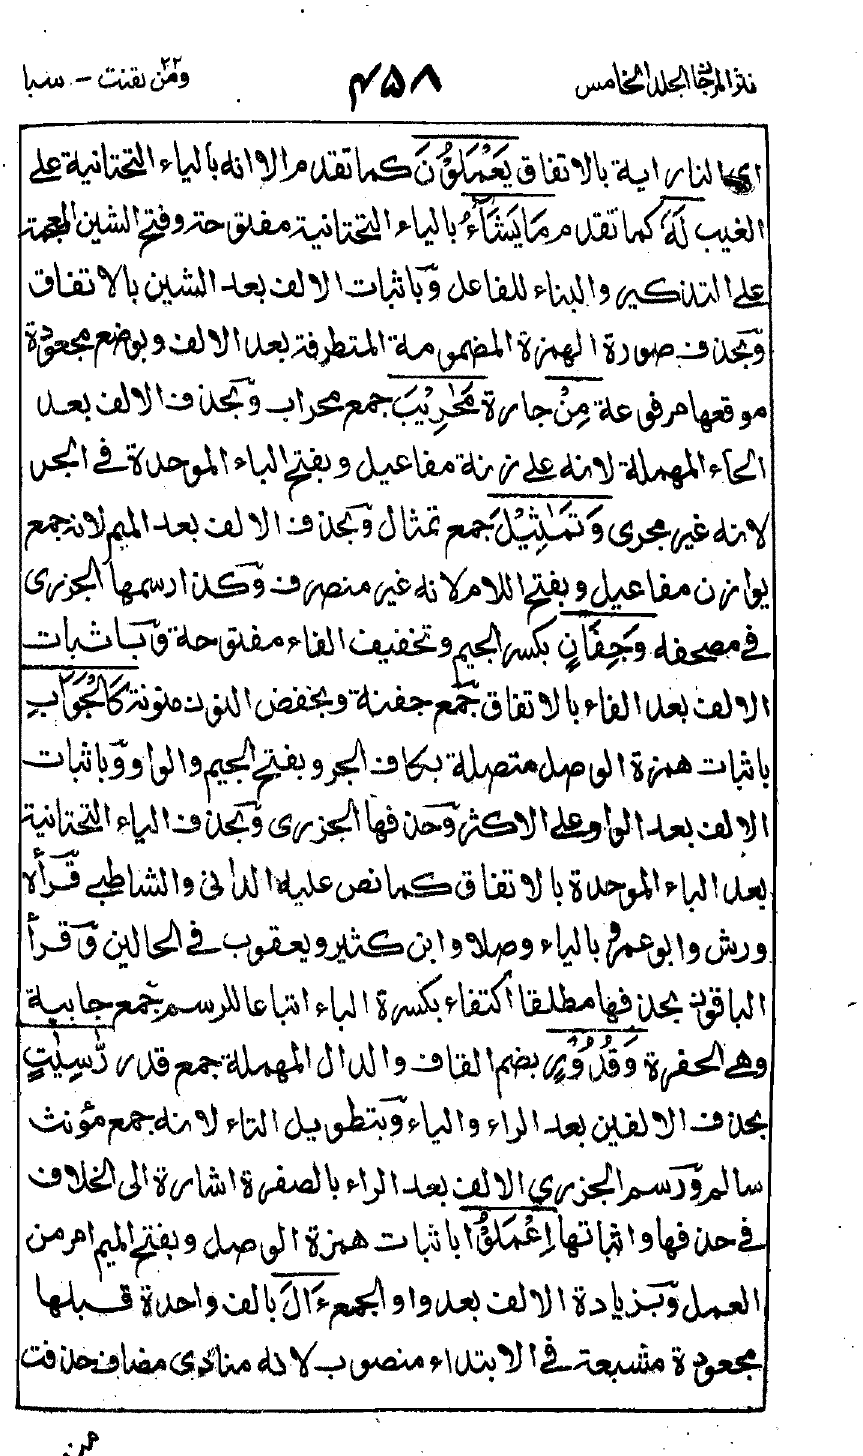 نثر المرجان الجلد الخامس ٤٥٨ ومن يقنت ٢٢ - سبا
اى النار اية بالاتفاق يَعْمَلُوْنَ كما تقدم الا انه بالياء التحتانية على
الغيب لَهٗ كما تقدم مَا يَشَآءُ بالياء التحتانية مفتوحة وفتح الشين المعجمة
على التذكير والبناء للفاعل وّباثبات الالف بعد الشين بالاتفاق
وّبحذف صورة الهمزة المضمومة المتطرفة بعد الالف وبوضع مجعودة
موقعها مرفوعة مِنْ جارة مَّحٰرِيْبَ جمع محراب وّبحذف الالف بعد
الحاء المهملة لانه على زنة مفاعيل وبفتح الباء الموحدة فى الجر
لانه غير مجرى وَتَمٰثِيْلَ جمع تمثال وّبحذف الالف بعد الميم لانه جمع
يوازن مفاعيل وبفتح اللام لانه غير منصرف وّكذا رسمها الجزرى
فى مصحفه وَجِفَانٍ بكسر الجيم وتخفيف الفاء مفتوحة وّباثبات
الالف بعد الفاء بالاتفاق جّمع جفنة وبخفض النون منونة كَالْجَوَابِ
باثبات همزة الوصل متصلة بكاف الجر وبفتح الجيم والواو وّباثبات
الالف بعد الواو على الاكثر وّحذفها الجزرى وّبحذف الياء التحتانية
بعد الباء الموحدة بالاتفاق كما نص عليه الدانى والشاطبى قّرأه
ورش وابو عمرو بالياء وصلا وابن كثير ويعقوب فى الحالين وّقرأ
الباقون بحذفها مطلقا اكتفاء بكسرة الباء اتباعا للرسم جّمع جابية
وهى الحفرة وَقُدُوْرٍ بضم القاف والدال المهملة جمع قدر رّٰسِيٰتٍ
بحذف الالفين بعد الراء والياء وّبتطويل التاء لانه جمع مؤنث
سالم وّرسم الجزرى الالف بعد الراء بالصفرة اشارة الى الخلاف
فى حذفها واثباتها اِعْمَلُوْٓا باثبات همزة الوصل وبفتح الميم امر من
العمل وّبزيادة الالف بعد واو الجمع ءَالَ بالف واحدة قبلها
مجعودة مشبعة فى الابتداء منصوب لانه منادى مضاف حذفت
من